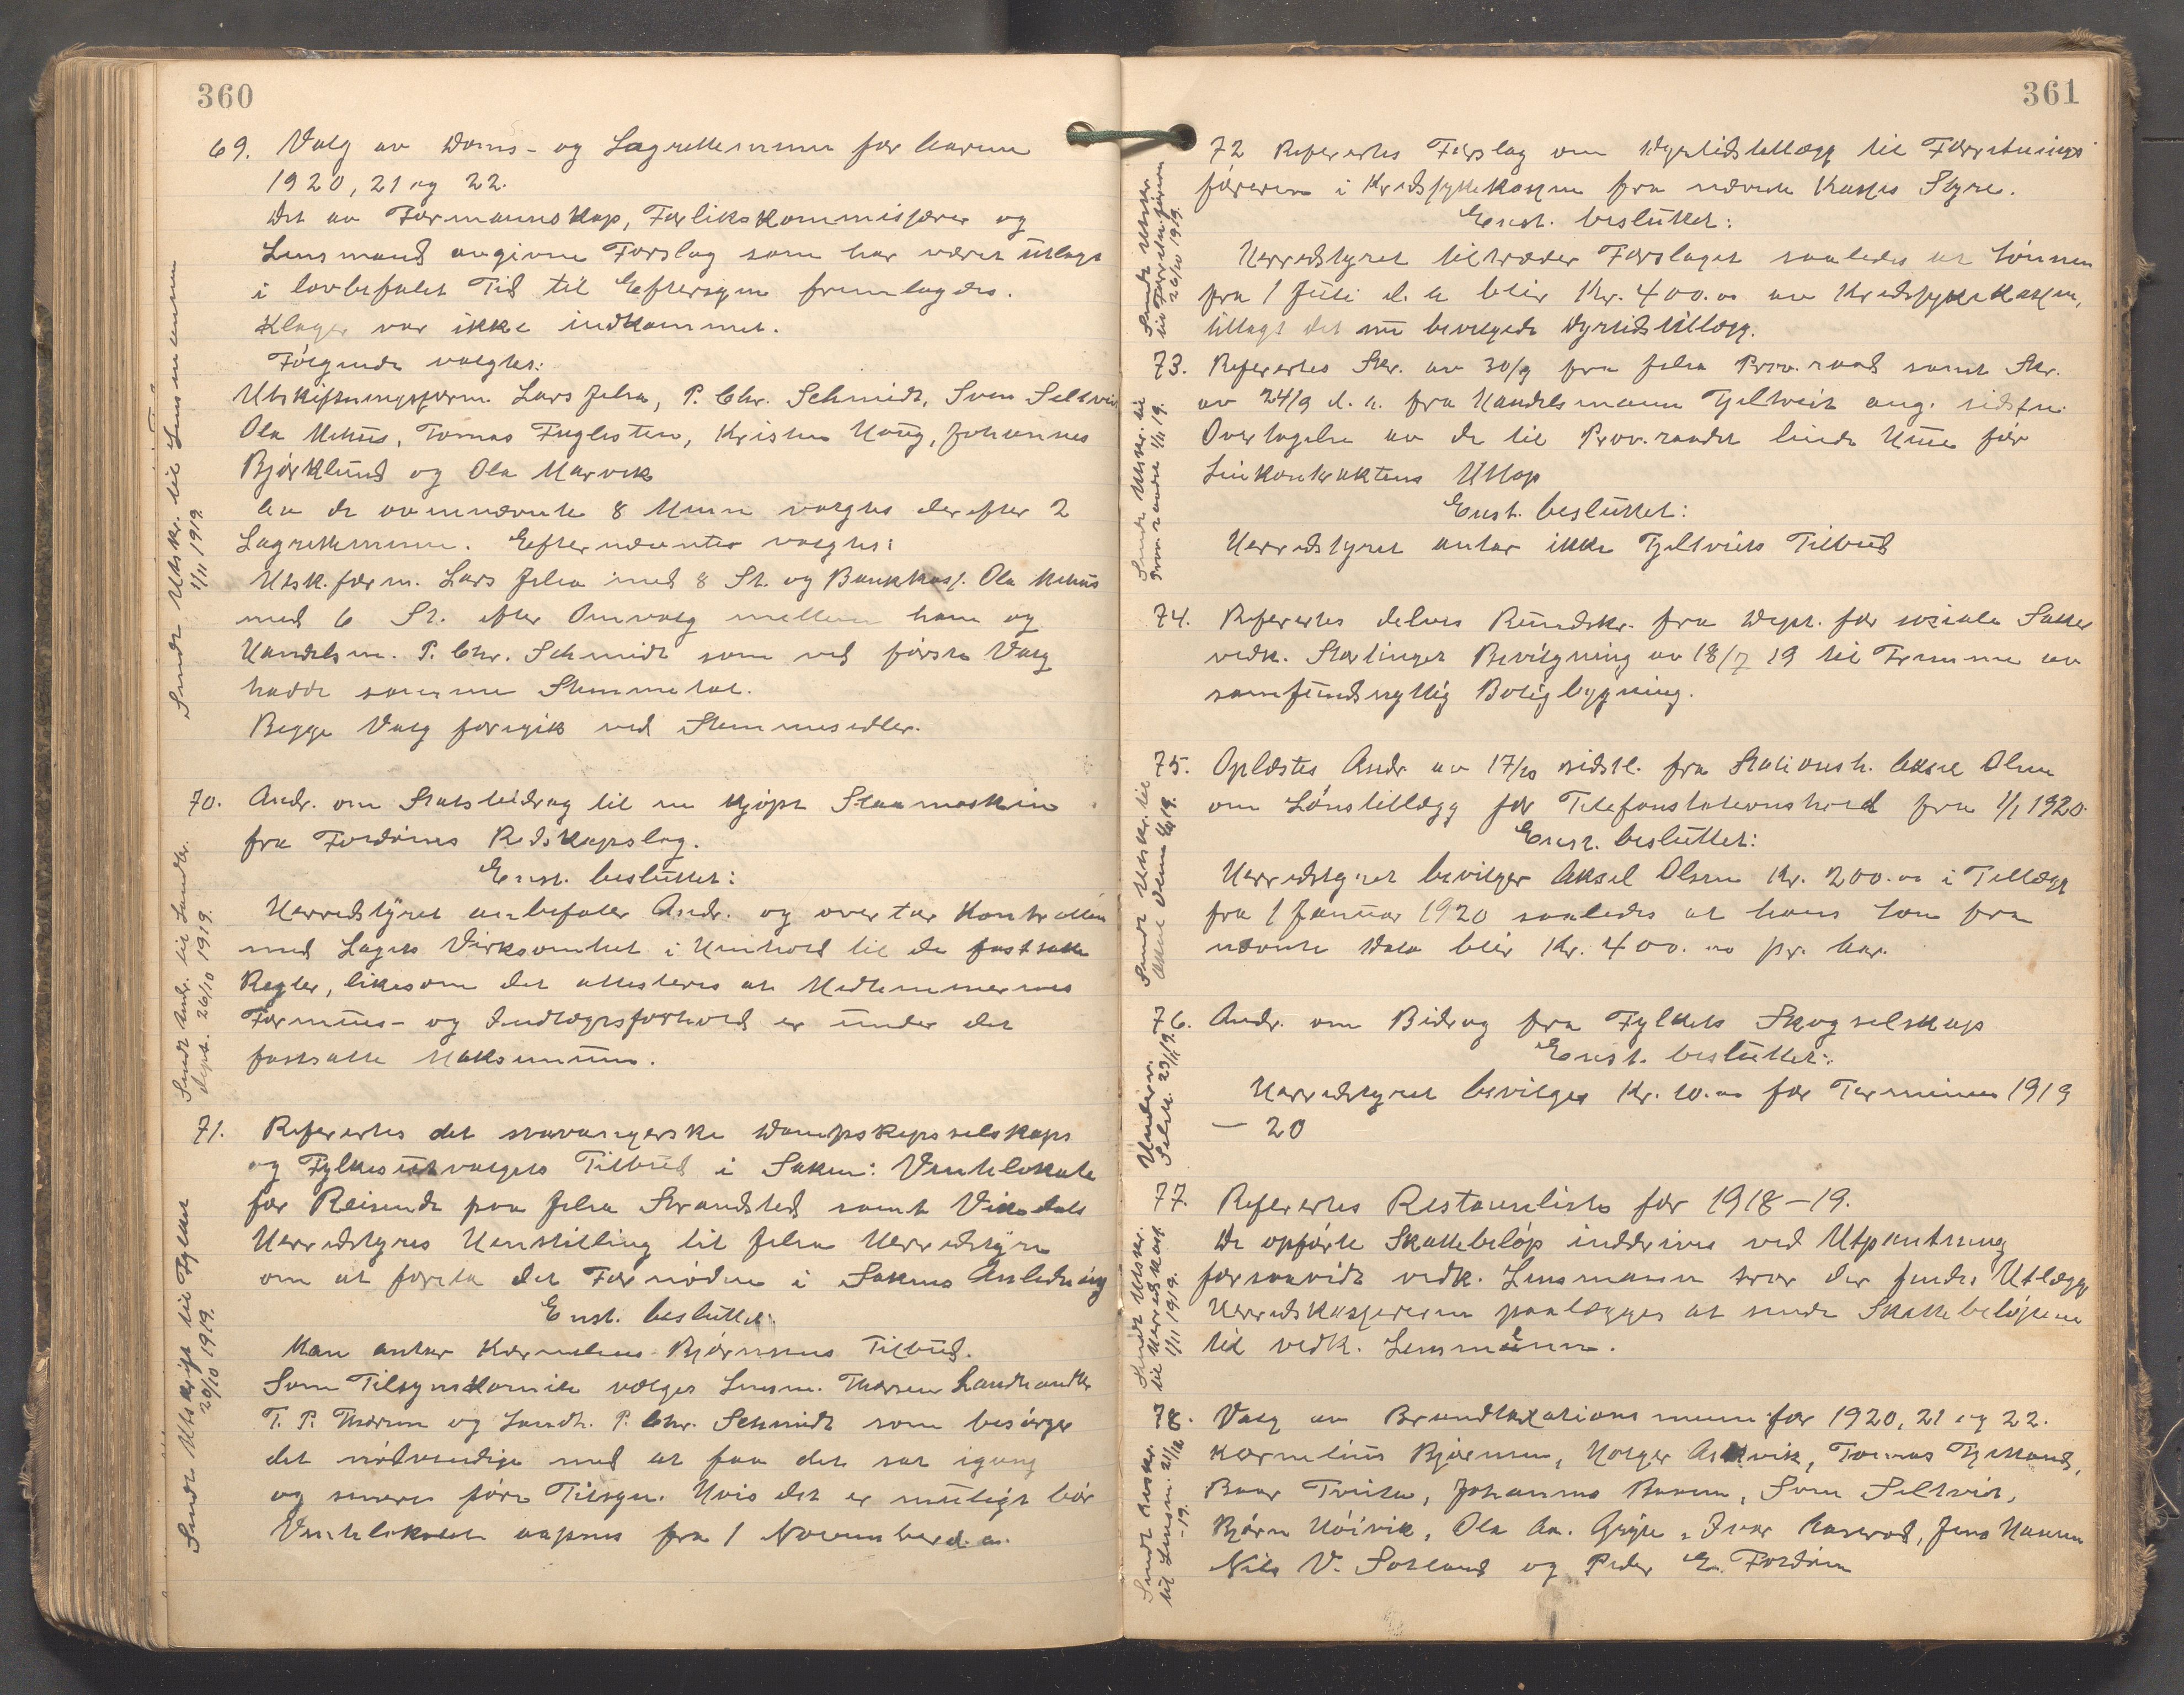 360
69. Valg av Doms- og Lagrettemenn for Aarene
1920, 21 og 22.
Det av Formannskap, Forlikskommisjærer og
Lensmand avgivne Forslag som har været utlagt
i lovbefalet Tid til Eftersyn fremlagdes.
Klager var ikke indkommet.
Følgende valgtes:
Utskiftningsform. Lars Jelsa, P. Chr. Schmidt, Sven Seltveit
Ola Mehus, Tomas Fuglesten, Kristen Haug, Johannes
Bjørklund og Ola Marvik
Av de ovennævnte 8 Menn valgtes derefter 2
Lagrettemenn. Efternævnter valgtes:
Utsk.form. Lars Jelsa med 8 St. og Bankkass. Ola Mehus
med 6 St. efter Omvalg mellem ham og
Handelsm. P. Chr. Schmidt som ved første Valg
hadde samme Stemmetal.
Begge Valg foregik ved Stemmesedler.
Sendt Utskr. til Lensmannen
1/11 1919.
70. Andr. om Statsbidrag til en kjøpt Slaamaskin
fra Fordøines Redskapslag.
Enst. besluttet:
Herredstyret anbefaler Andr. og overtar Kontrollen
med Lagets Virksomhet i Henhold til de fastsatte
Regler, likesom det attesteres at Medlemmernes
Formues- og Indtægtsforhold er under det
fastsatte Maksimum.
Sendt Andr. til Landbr.
dept. 26/10 1919.
71. Refertes det stavangerske Dampskipsselskaps
og Fylkesutvalgets Tilbud i Saken: Ventelokale
for Reisende paa Jelsa Strandsted samt Vikedals
Herredstyres Henstilling til Jelsa Herredstyre
om at foreta det Fornødne i Sakens Anledning
Enst. besluttet:
Man antar Kornelius Bjørnsens Tilbud.
Som Tilsynskomite vælges Lensm. Thorsen Landhandler
T. P. Thorsen og Landh. P. Chr. Schmidt som besørger
det nødvendige med at faa det sat igang
og senere føre Tilsyn. Hvis det er muligt bør
Ventelokalet aapnes fra 1 November d. a.
Sendt Utskrift til Fylket
20/10 1919.
361
72 Refertes Forslag om Dyrtidstillægg til Forretnings
føreren i Kredssykekassen fra nævnte Kasses Styre.
Enst. besluttet:
Herredstyret tiltræder Forslaget saaledes at Lønnen
fra 1 Juli d. a blir Kr. 400.00 av Kredssykekassen,
tillagt det nu bevilgede Dyrtidstillægg.
Sendt Utskr.
til Forretn.føreren
26/10 1919.
73. Refertes Skr. av 30/9 fra Jelsa Prov.raad samt Skr.
av 24/9 d. a. fra Handelsmann Tjeltveit ang. sidstn.
Overtagelse av de til Prov.raadet leiede Huse før
Leiekontraktens Utløp
Enst. besluttet:
Herredstyret antar ikke Tjeltveits Tilbud
Sendt Utskr. til
Prov.raadet 1/11 19.
74. Refertes delvis Rundskr. fra Dept. for sosiale Saker
vedk. Stortinget Bevilgning av 18/7 19 til Fremme av
samfundsnyttig Boligbygning.
75. Oplæstes Andr av 17/10 sidstl. fra Stationsh. Aksel Olsen
om Lønstillægg for Telefonstationshold fra 1/1 1920.
Enst. besluttet:
Herredstyret bevilger Aksel Olsen Kr. 200.00 i Tillægg
fra 1 Januar 1920 saaledes at hans Løn fra
nævnte Dato blir Kr. 400.00 pr. Aar.
Sendt Utskr. til
Aksel Olsen 19.
76. Andr. om Bidrag fra Fylkets Skogselskap
Enst. besluttet:
Herredstyret bevilger Kr. 10.00 for Terminen 1919
– 20
Underr.
Selsk. 23/11 19.
77. Refertes Restanseliste for 1918–19.
De opførte Skattebeløp inddrives ved Utpantning
forsaavidt vedk. Lensmann tror der findes Utlægg
Herredskassereren paalægges at sende Skattebeløpene
til vedk. Lensmenn.
Sendt Utskr.
til Herredskass.
1/11 1919.
78. Valg av Brandtaxationsmenn for 1920, 21 og 22.
Kornelius Bjørnsen, Holger Askvik, Tomas Fjelland,
Baar Tveita, Johannes Ravn, Sven Seltveit,
Bjørn Høivik, Ola Aa. Grøje, Ivar Aaserød, Jens Hansen
Nils V. Sørland og Peder E. Fordøin
Sendt Utskr.
til Lensm. 21/12
–19.